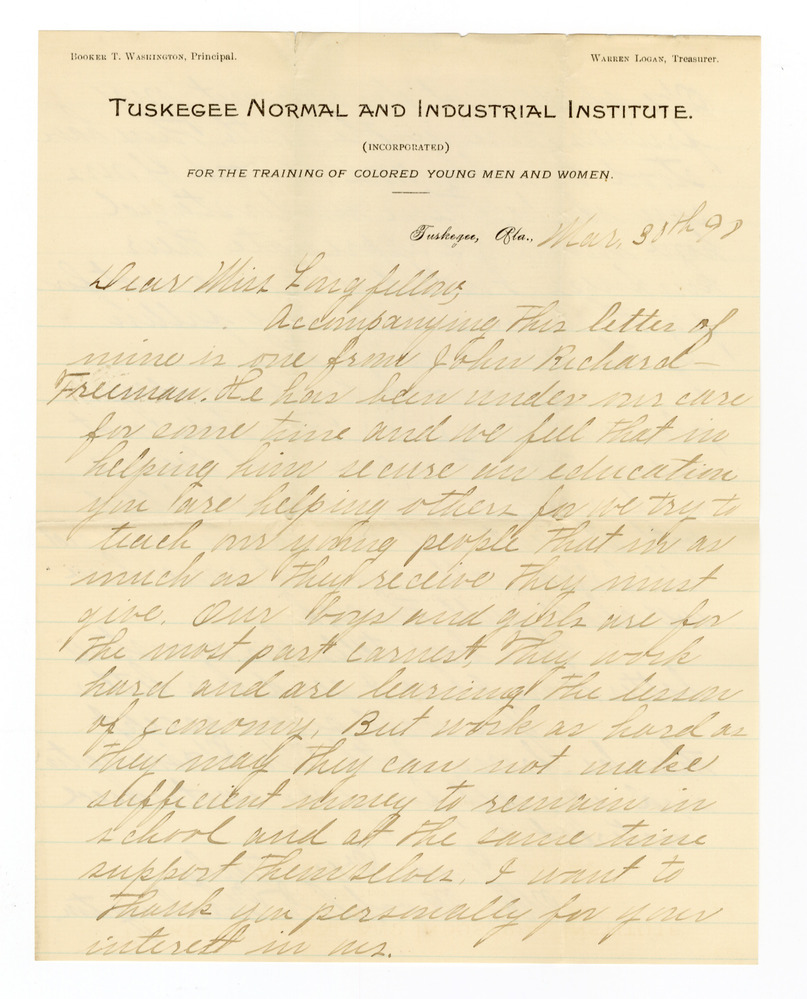 Booker T. Washington, Principal. Warren Logan, Treasurer.
Tuskegee Normal and Industrial Institute.
(INCORPORATED)
FOR THE TRAINING OF COLORED YOUNG MEN AND WOMEN.
Tuskegee, Ala., Mar. 30th
Dear Miss Longfellow,
Accompanying this letter of
mine is one from John Richard-
Freeman. He has been under our care
for some time and we feel that in
helping him secure an education
you are helping others for we try to
teach our young people that in as
much as they receive they must
give. Our boys and girls are for
the most part earnest, they work
hard and are learning the lesson
of economy. But work as hard as
they may they can not make
sufficient money to remain in
school and at the same time
support themselves. I want to
thank you personally for your
interest in us.